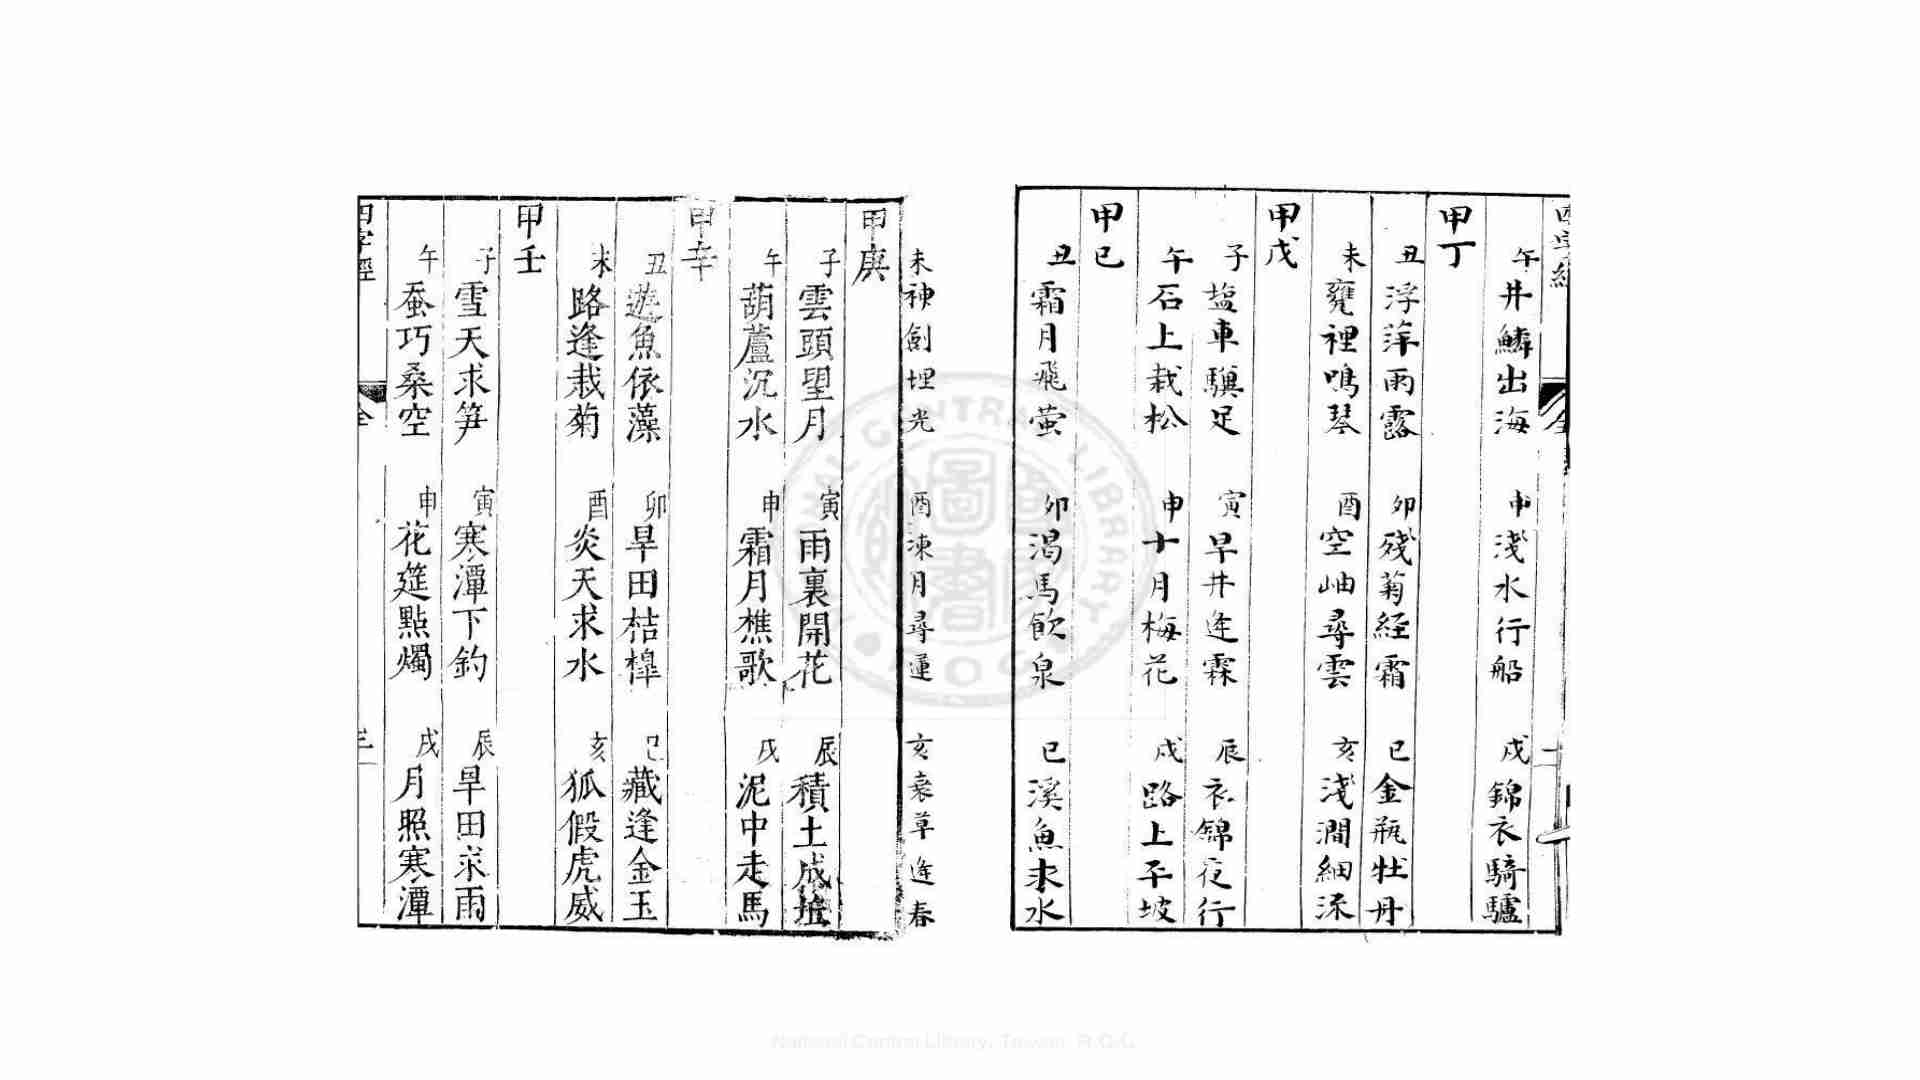 午井鱗出海 申淺水行船 戌錦衣騎驢
甲丁
丑浮萍雨露 卯殘菊経霜 巳金瓶牡丹
未甕裡鳴琴 酉空岫尋雲 亥淺澗細流
甲戊
子塩車驥足 寅早井逢霖 辰衣錦夜行
午石上栽松 申十月梅花 戌路上平坡
甲己
丑霜月飛萤 卯渴馬飲泉 巳溪魚求水
未神劍埋光 酉凍月尋蓮 亥衰草逢春
甲庚
子雲頭望月 寅雨裏開花 辰積土成
午葫蘆沉水 申霜月樵歌 戌泥中走馬
甲辛
丑遊魚依藻 卯旱田桔槹 巳藏逢金玉
未路逢栽菊 酉炎天求水 亥狐假虎威
甲壬
子雪天求笋 寅寒潭下釣 辰旱田求雨
午蚕巧桑空 申花筵點燭 戌月照寒潭
四字經 全 三
National Central Library, Taiwan, R.O.C.